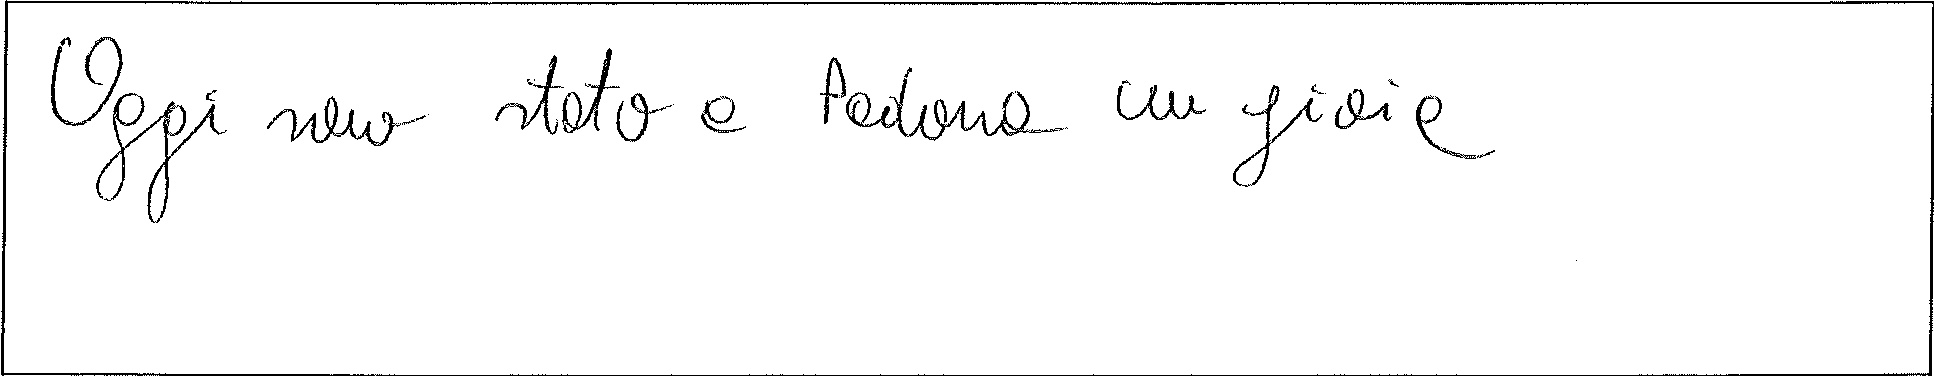 Oggi sono stato a Padova gioia